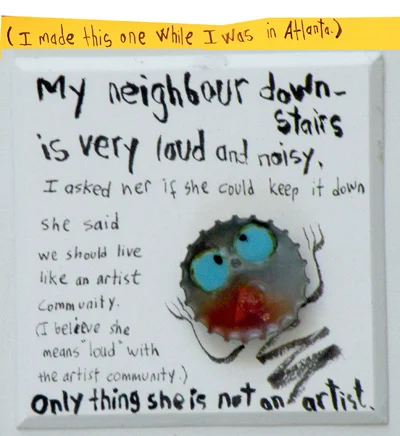 (I made this one while I was in Atlanta.)
My neighbour down-
stairs
is very loud and noisy.
I asked her if she could keep it down
she said
we should live
like an artist
community.
(I believe she
means "loud" with
the artist community.)
Only thing she is not an artist.